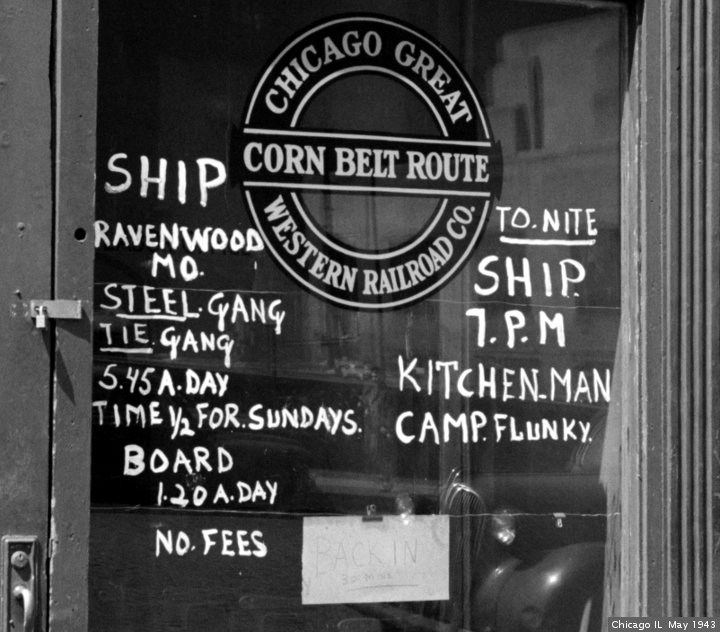 CHICAGO GREAT
CORN BELT ROUTE
WESTERN RAILROAD CO.
SHIP
RAVENWOOD
MO.
STEEL.GANG
TIE.GANG
5.45 A.DAY
TIME 1/2 FOR.SUNDAYS.
BOARD
1.20 A.DAY
NO.FEES
TO.NITE
SHIP.
7.P.M
KITCHEN-MAN
CAMP.FLUNKY.
BACK IN
30 MIN
Chicago IL May 1943